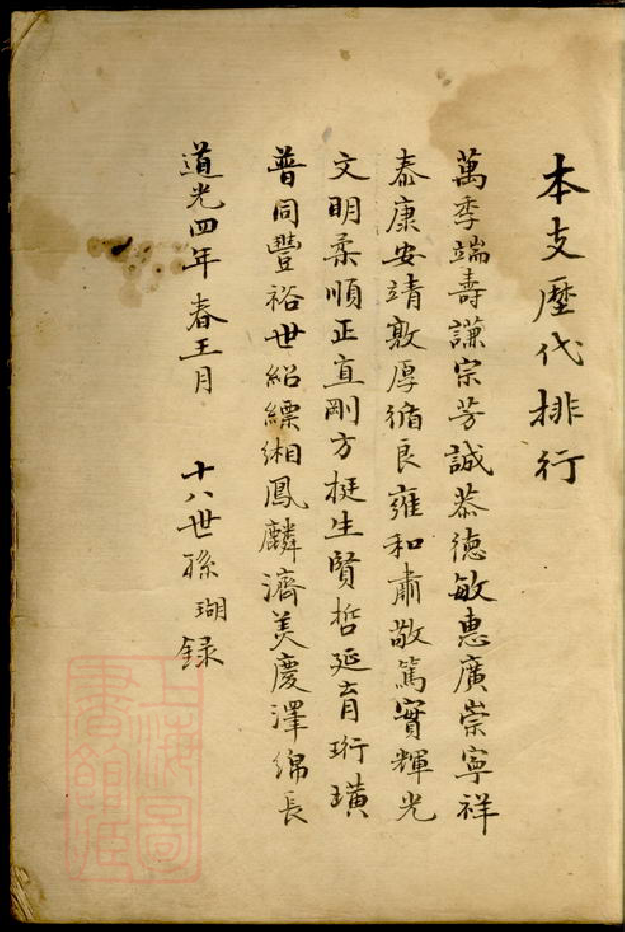 本支歷代排行
萬季端壽謙宗芳誠恭德敏惠廣崇寧祥
泰康安靖敦厚循良雍和肅敬篤實輝光
文明柔順正直剛方挺生賢哲延育珩璜
普同豐裕世紹縹緗鳳麟濟美慶澤綿長
道光四年春王月 十八世孫瑚録
上海圖
書館藏